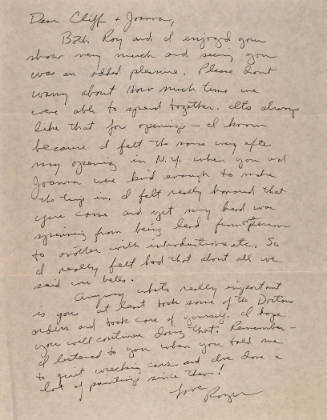 Dear Cliff + Joanna,
Both Roy and I enjoyed your
show very much and seeing you
was an added pleasure. Please don't
worry about how much time we
were able to spend together. It's always
like that for openings — I know
because I felt the same way after
my opening in N.Y. when you and
Joanna were kind enough to make
the trip in. I felt really honored that
you came and yet my head was
spinning from being lead from person
to another with introductions etc. So
I really felt bad that about all we
said was hello.
Anyway what's really important
is you at least took some of the Doctors
orders and took care of yourself. I hope
you will continue doing that! Remember —
I listened to you when you told me
to quit wrecking cars and I've done a
lot of paintings since then!
Love
Roger